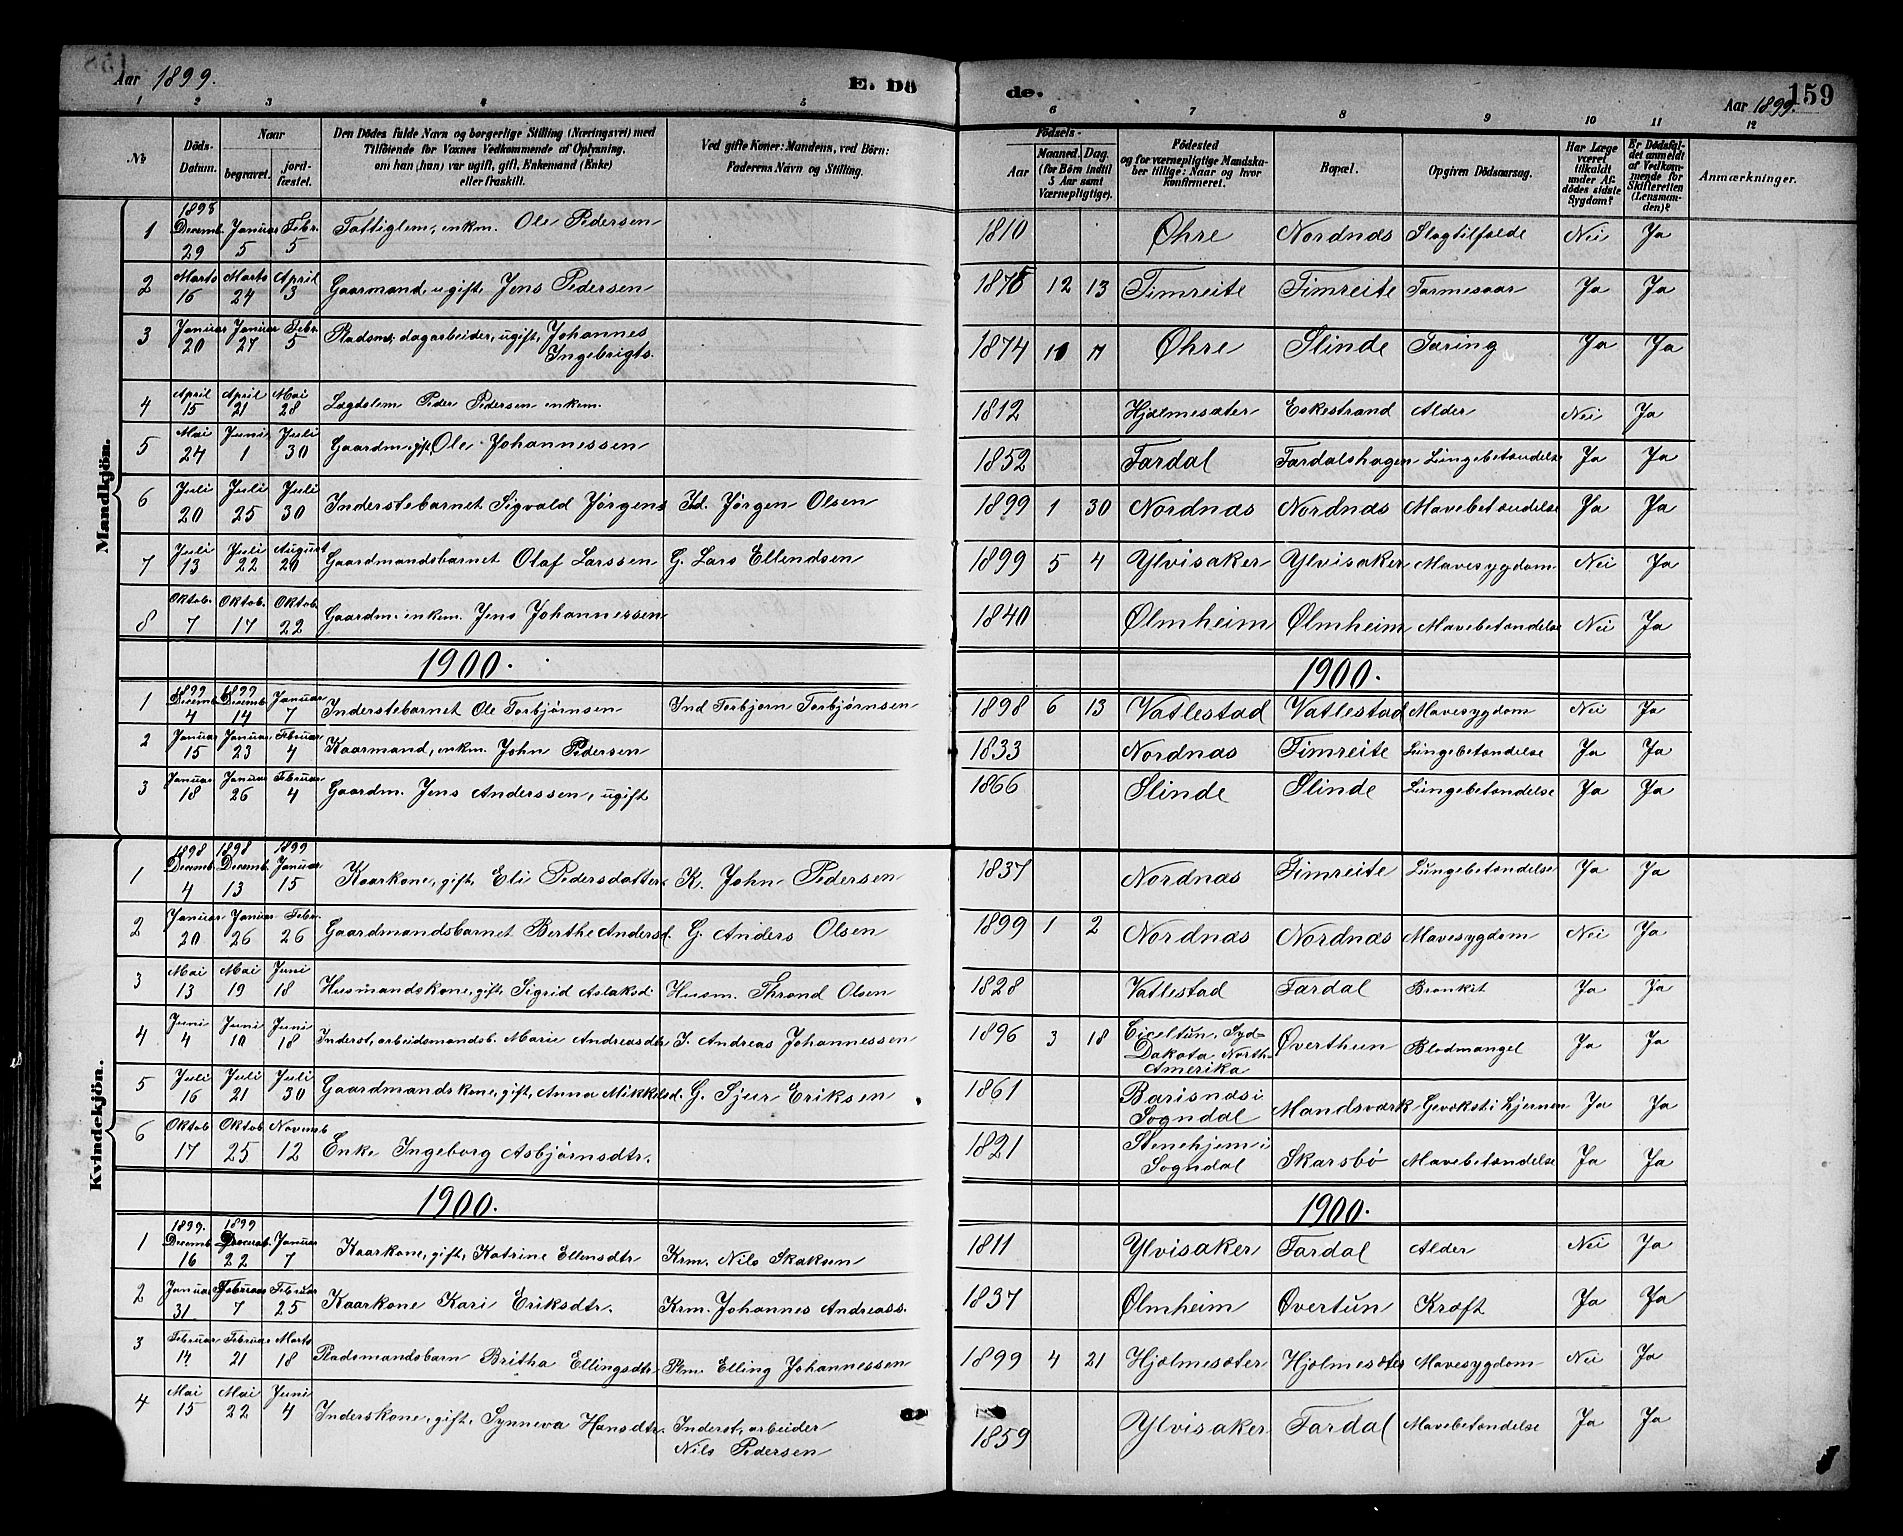 Aar 1899.
E. Dö
de.
Aar 1899.
159
1 2 3 4 5 6 7 8 9 10 11 12
No
Döds-Datum.
Naar
begravet.
jordfæstet.
Den Dödes fulde Navn og borgerlige Stilling (Næringsvei) med
Tilföiende for Voxnes Vedkommende af Oplysning,
om han (hun) var ugift, gift, Enkemand (Enke)
eller fraskilt.
Ved gifte Koner: Mandens, ved Börn:
Faderens Navn og Stilling.
Födsels-
Aar
Maaned. Dag.
(for Börn indtil
5 Aar samt
Værnepligtige).
Födested
og for værnepligtige Mandska-
ber tillige: Naar og hvor
konfirmeret.
Bopæl.
Opgiven Dödsaarsag.
Har Læge
været
tilkaldt
under Af-
dödes sidste
Sygdom?
Er Dödsfal-
det anmeldt
af Vedkom-
mende for
Skifteretten
(Lensman-
den)?
Anmærkninger.
Mandkjön.
1 1898 Decemb. 29 Januar 5 Febr. 5 Fattiglem, enkm. Ole Pedersen 1810 Øhre Nordnæs Slagtilfælde Nei Ja
2 Marts 16 Marts 24 April 3 Gaarmand, ugift, Jens Pedersen 1875 12 13 Timreite Timreite Tarmesaar Ja Ja
3 Januar 20 Januar 27 Febr. 5 Pladsms. dagarbeider, ugift, Johannes Ingebrigts. 1874 11 17 Øhre Slinde Tæring Ja Ja
4 April 15 April 21 Mai 28 Lægdslem Peder Pedersen enkm. 1812 Hjælmesæter Eskestrand Alder Nei Ja
5 Mai 24 Juni 1 Juli 30 Gaardm. gift, Ole Johannessen 1852 Fardal Fardalshagen Lungebetændelse Ja Ja
6 Juli 20 Juli 25 Juli 30 Inderstebarnet Sigvald Jørgens Id. Jørgen Olsen 1899 1 30 Nordnæs Nordnæs Mavebetændelse Ja Ja
7 Juli 13 Juli 22 August 20 Gaardmandsbarnet Olaf Larssen G. Lars Ellendsen 1899 5 4 Ylvisaker Ylvisaker Mavesygdom Nei Ja
8 Oktob. 7 Oktob. 17 Oktob. 22 Gaardm. enkem. Jens Johannessen 1840 Ølmheim Ølmheim Mavebetændelse Nei Ja
1900. 1900.
1 1899 Decemb. 4 1899 Decemb. 14 Januar 7 Inderstebarnet Ole Torbjørnsen Ind Torbjørn Torbjørnsen 1898 6 13 Vatlestad Vatlestad Mavesygdom Nei Ja
2 Januar 15 Januar 23 Februar 4 Kaarmand, enkm. John Pedersen 1833 Nordnæs Timreite Lungebetændelse Ja Ja
3 Januar 18 Januar 26 Februar 4 Gaardm. Jens Anderssen, ugift 1866 Slinde Slinde Lungebetændelse Ja Ja
Kvindekjön.
1 1898 Decemb. 4 1898 Decemb. 13 1899 Januar 15 Kaarkone, gift, Eli Pedersdatter K. John Pedersen 1837 Nordnæs Timreite Lungebetændelse Ja Ja
2 Januar 20 Januar 26 Febr. 26 Gaardmandsbarnet Berthe Andersd. G. Anders Olsen 1899 1 2 Nordnæs Nordnæs Mavesygdom Nei Ja
3 Mai 13 Mai 19 Juni 18 Husmandskone, gift, Sigrid Aslaksd. Husm. Thrond Olsen 1828 Vatlestad Fardal Bronkit Ja Ja
4 Juni 4 Juni 10 Juni 18 Inderst, arbeidsmandsb. Marie Andreasdtr. I. Andreas Johannessen 1896 3 18 Syd-Dakota North-Amerika Øverthun Blodmangel Ja Ja
5 Juli 16 Juli 21 Juli 30 Gaardmandskone, gift, Anna Mikkelsd. G. Sjur Eriksen 1861 Barisnæs i Sogndal Mandsværk Gevækst i hjernen Ja Ja
6 Oktob 17 Oktob 25 Novemb 12 Enke Ingeborg Asbjørnsdtr. 1821 Stenehjem i Sogndal Skarsbø Mavebetændelse Ja Ja
1900. 1900.
1 1899. Decemb. 16 1899 Decemb. 22 Januar 7 Kaarkone, gift, Katrine Ellensdtr Krm. Nils Skaksen 1811 Ylvisaker Fardal Alder Nei Ja
2 Januar 31 Februar 7 Februar 25 Kaarkone Kari Eriksdtr. Krm. Johannes Andreass. 1837 Ølmheim Øvertun Kræft Ja Ja
3 Februar 14 Februar 21 Marts 18 Pladsmandsbarn Britha Ellingsdtr Plm. Elling Johannessen 1899 4 21 Hjælmesæter Hjelmesæter Mavesygdom Nei Ja
4 Mai 15 Mai 22 Juni 4 Inderskone, gift, Synneva Hansdtr. Inderst, arbeider Nils Pedersen 1859 Ylvisaker Fardal Mavebetændelse Ja Ja